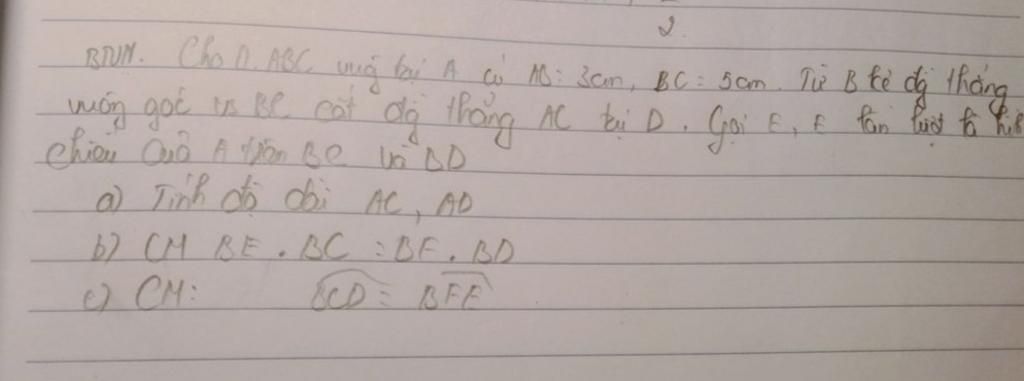 2
BTVN. Cho Δ ABC vuông tại A có AB = 3cm, BC = 5cm. Từ B kẻ đg thẳng
vuông góc vs BC cắt đg thẳng AC tại D. Gọi E, F lần lượt là hình
chiếu của A trên BC và BD
a) Tính độ dài AC, AD
b) CM BE . BC = BF . BD
c) CM: BCD = BFE